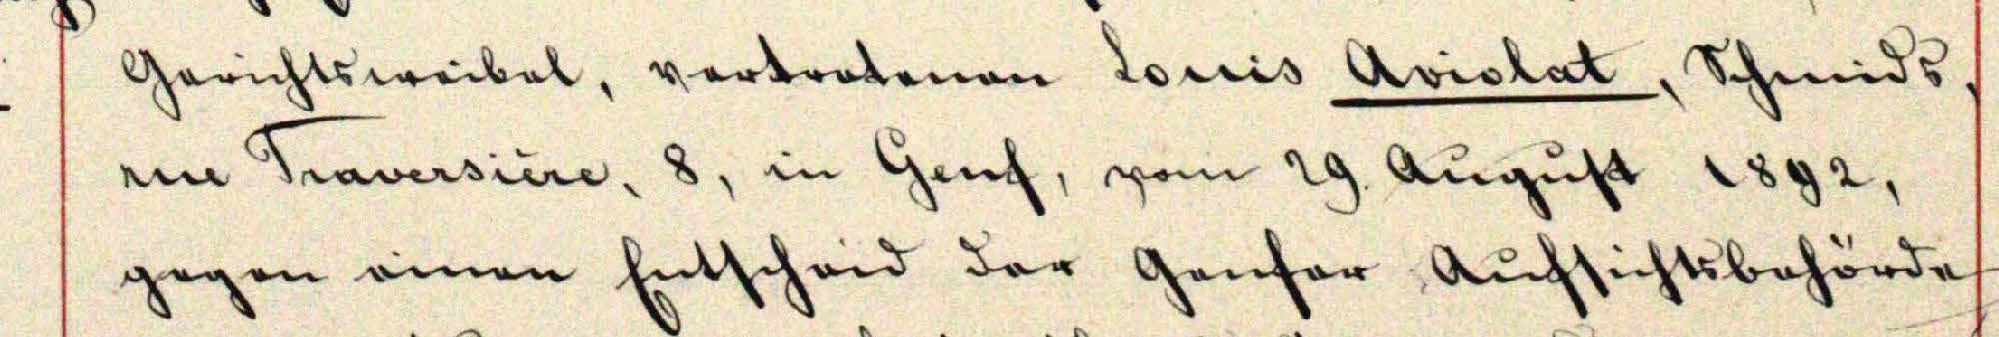 Gerichtsweibel, vertretenen Louis Aviolat, Schmids,
rue Traversière, 8, in Genf, vom 29. August 1892,
gegen einen Entscheid der Genfer Aufsichtsbehörde